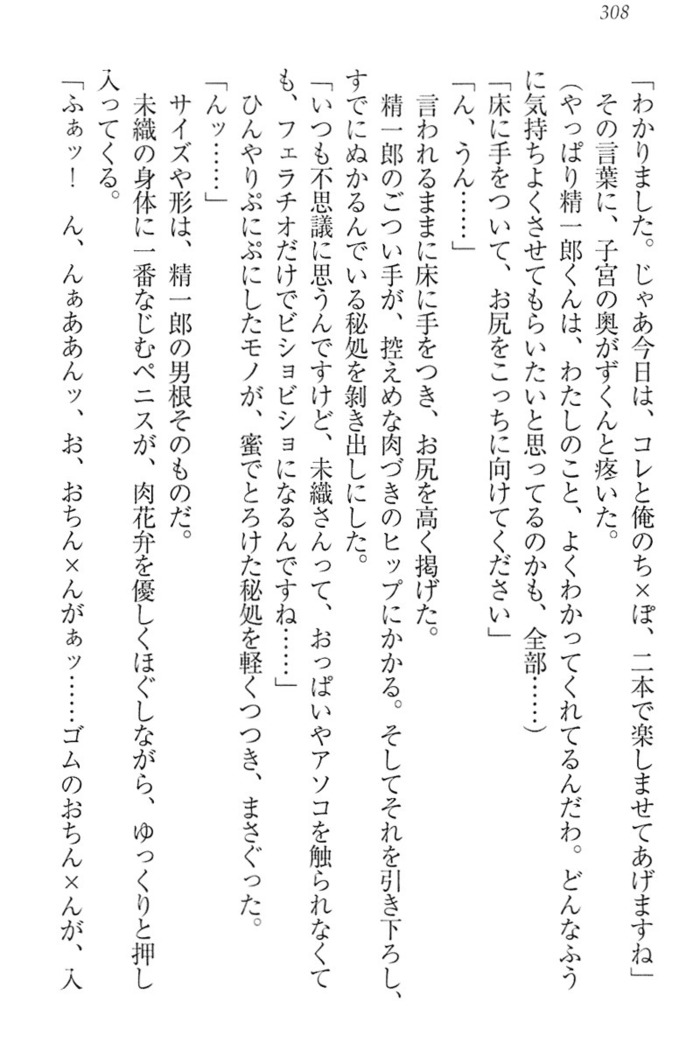 308
「わかりました。じゃあ今日は、コレと俺のち×ぽ、二本で楽しませてあげますね」
その言葉に、子宮の奥がずくんと疼いた。
(やっぱり精一郎くんは、わたしのこと、よくわかってくれてるんだわ。どんなふう
に気持ちよくさせてもらいたいと思ってるのかも、全部……)
「床に手をついて、お尻をこっちに向けてください」
「ん、うん……」
言われるままに床に手をつき、お尻を高く掲げた。
精一郎のごつい手が、控えめな肉づきのヒップにかかる。そしてそれを引き下ろし、
すでにぬかるんでいる秘処を剝き出しにした。
「いつも不思議に思うんですけど、未織さんって、おっぱいやアソコを触られなくて
も、フェラチオだけでビショビショになるんですね……」
ひんやりぷにぷにしたモノが、蜜でとろけた秘処を軽くつつき、まさぐった。
「んッ……」
サイズや形は、精一郎の男根そのものだ。
未織の身体に一番なじむペニスが、肉花弁を優しくほぐしながら、ゆっくりと押し
入ってくる。
「ふぁッ! ん、んぁああんッ、お、おちん×んがぁッ……ゴムのおちん×んが、入